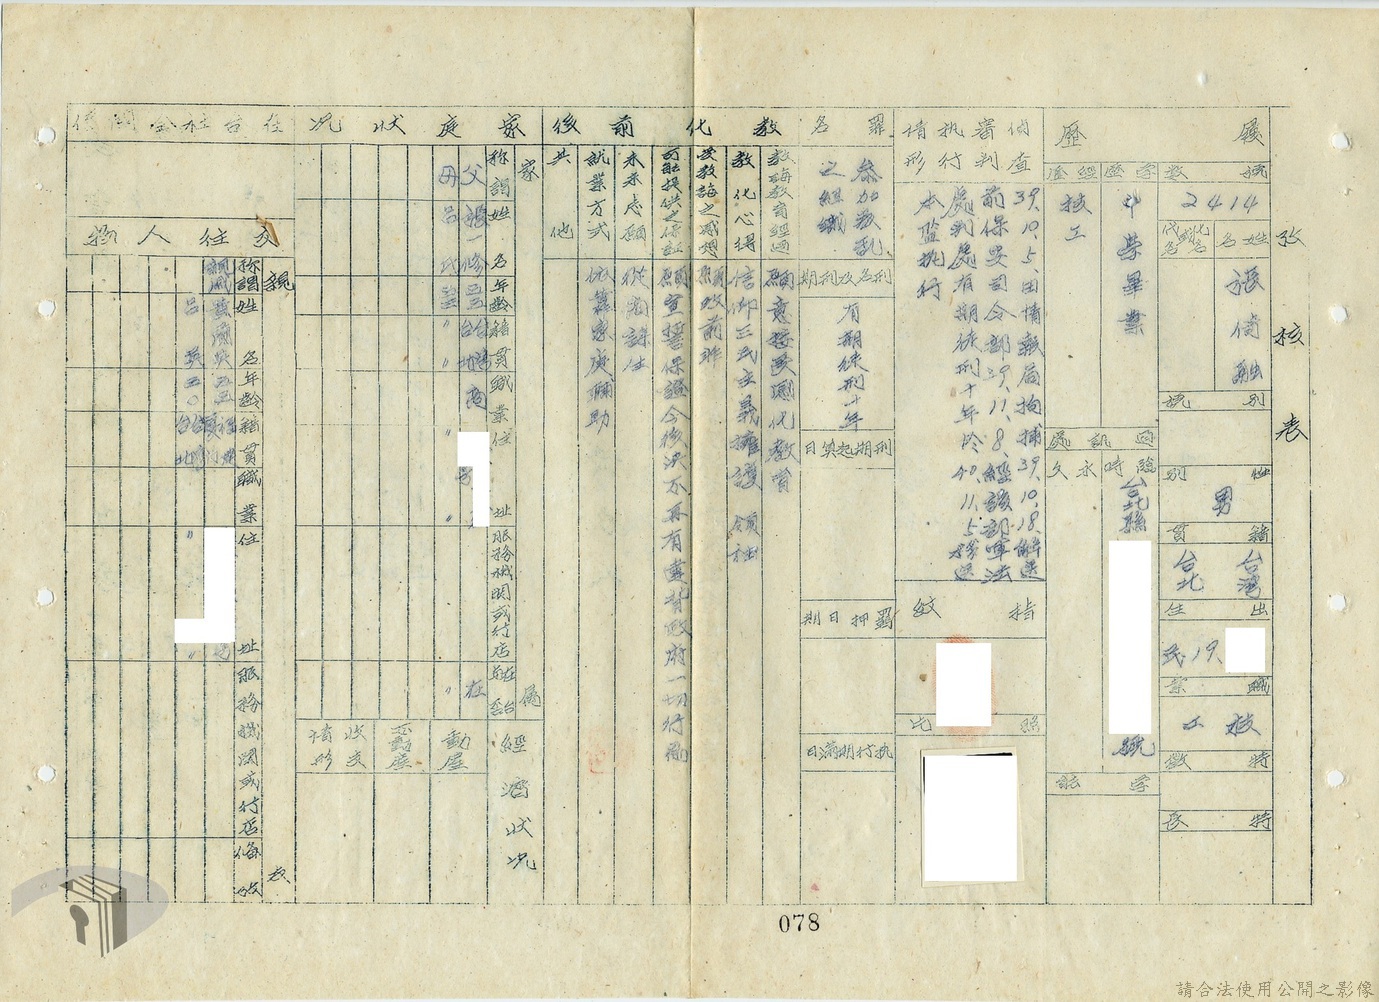 考核表
履歷
號數
2414
姓名
化名或代名
張倚融
別號
性別
男
籍貫
台灣
台北
出生
民19.
職業
技工
特徵
特長
學歷
經歷
中榮畢業
技工
通訊處
臨時
永久
台北縣
號
學能
偵查審判执行情形
39.10.5.由情報局拘捕39.10.18.解送
前保安司令部39.11.8.經該部軍法
處判處有期徒刑十年於40.11.5.移送
本監執行
指紋
照片
罪名
參加叛亂
之組織
刑名及刑期
有期徒刑十年
刑期起算日
羈押日期
执行期滿日
教化前後
教誨教育經過
願意接受感化教育
教化心得
信仰三民主義擁護 領袖
受教誨之感想
願改前非
可能提供之保証
願宣誓保證今後決不再有違背政府一切行爲
未來志願
從商謀生
就業方式
依靠家庭輔助
其他
家庭狀況
家屬
稱謂
姓名
年齡
籍貫
職業
住址
服務機関或行店
是否在台
父
張一修
五五
台灣
台北
商
號
在
母
呂氏
〃
〃
〃
〃
〃
經濟狀況
動產
不動產
收支情形
在台社会関係
交往人物
親友
稱謂
姓名
年齡
籍貫
職業
住址
服務機関或行店
備攷
親戚
五五
福建
廈門
號
呂英
五〇
台灣
台北
〃
〃
078
請合法使用公開之影像